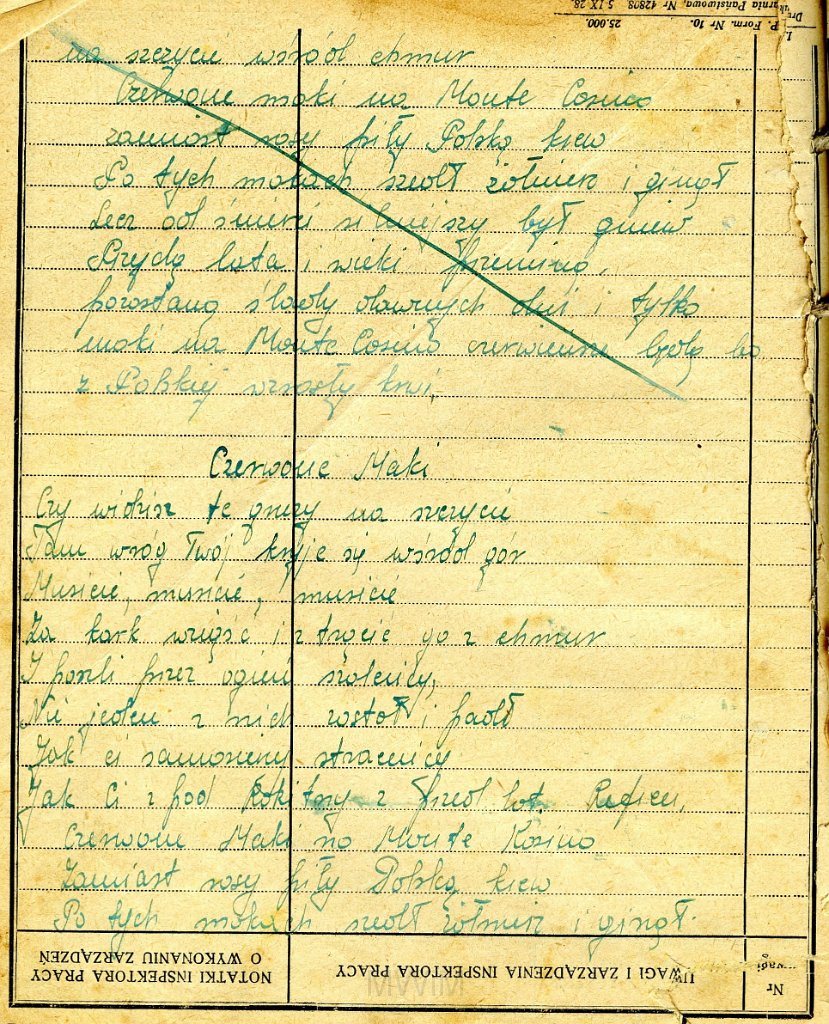 L. P. Form. Nr 10. 25.000.
Drukarnia Państwowa, Nr 42808. 5 IX 28.
na szczycie wśród chmur
Czerwone maki na Monte Cosino
zamiast rosy piły Polską krew
Po tych makach szedł żołnierz i ginął
Lecz od śmierci silniejszy był gniew
Przejdą lata i wieki przeminą,
pozostaną ślady dawnych dni i tylko
maki na Monte Cosino czerwiensze będą bo
z Polskiej wzrosły krwi,
Czerwone Maki
Czy widzisz te gruzy na szczycie
Tam wróg Twój kryje się wśród gór
Musicie, musicie, musicie
Za kark wziąść i z trącić go z chmur
I poszli przez ogień szaleńcy,
Nie jeden z nich został i padł
Jak ci samosieny straceńcy
Jak Ci z pod Rokitny z przed lat
Czerwone Maki na Monte Kasino
Zamiast rosy piły Polską krew
Po tych makach szedł żołnierz i ginął.
NOTATKI INSPEKTORA PRACY O WYKONANIU ZARZĄDZEŃ
UWAGI I ZARZĄDZENIA INSPEKTORA PRACY
Nr uwagi
MWIM